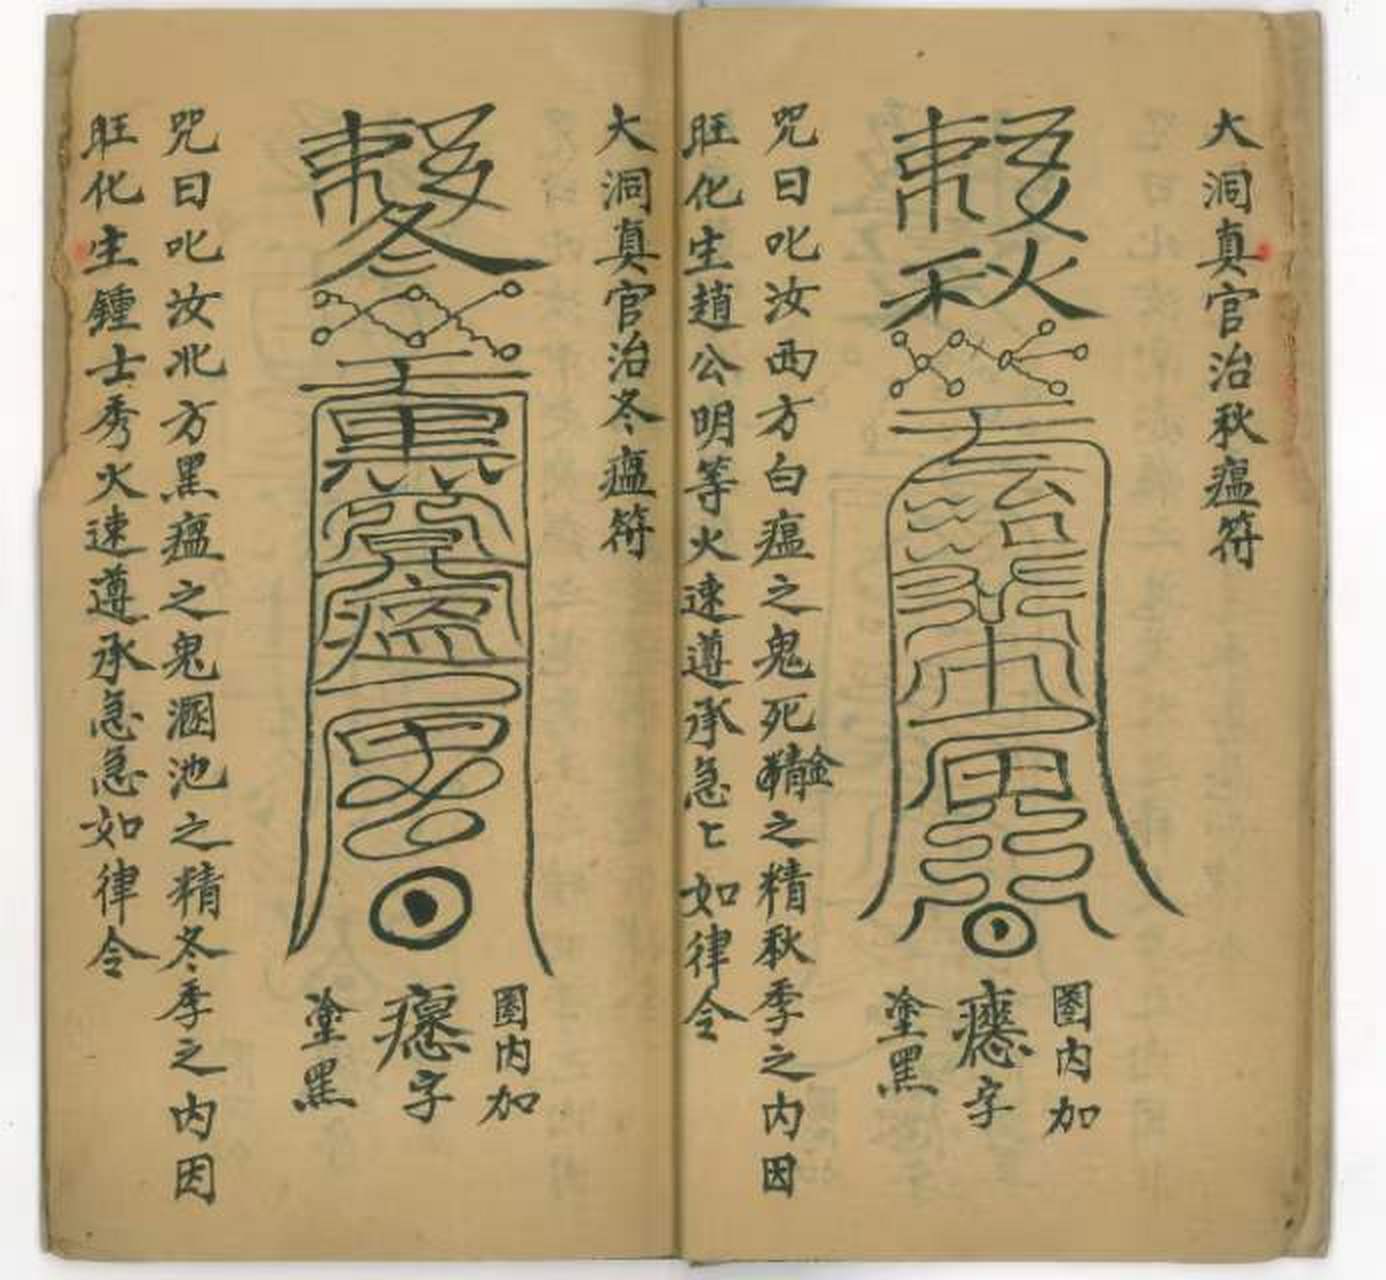 大洞真官治秋瘟符
圈内加
字
塗黑
咒曰叱汝西方白瘟之鬼死金之精秋季之内因
旺化生趙公明等火速遵承急匕如律令
大洞真官治冬瘟符
圈内加
字
塗黑
咒曰叱汝北方黑瘟之鬼溷池之精冬季之内因
旺化生鍾士秀火速遵承急急如律令